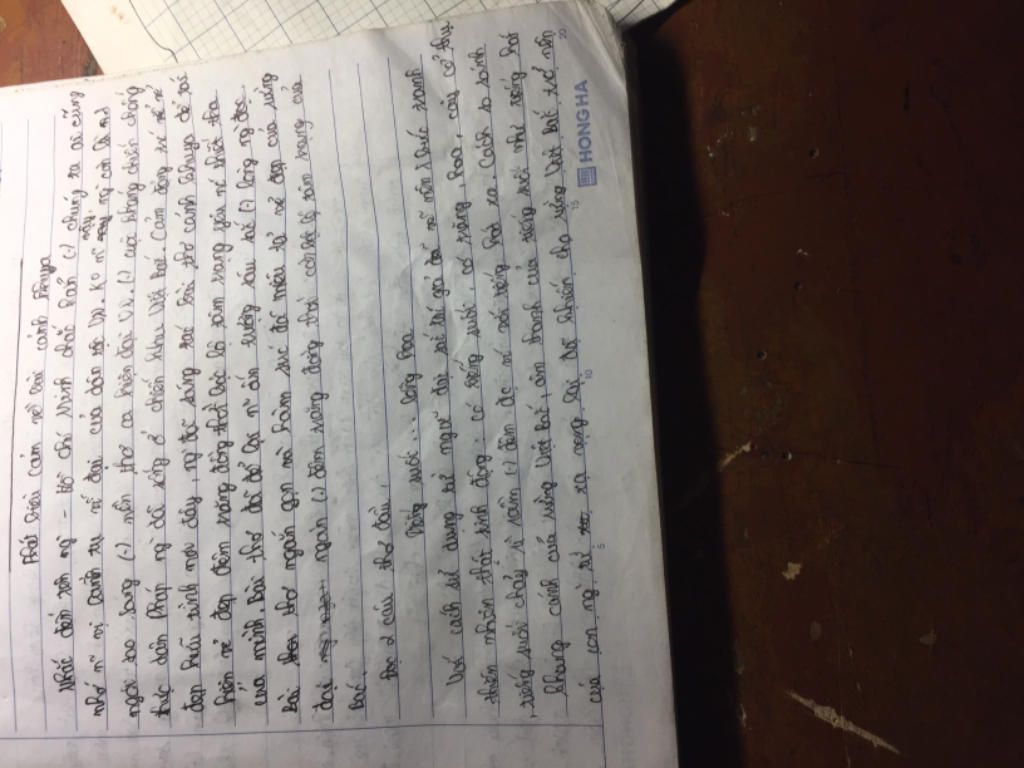 Phát biểu cảm nghĩ bài cảnh khuya
Nhắc đến tên ng - Hồ Chí Minh chắc hẳn (-) chúng ta ai cũng
nhớ m vị lãnh tụ vĩ đại của dân tộc VN. Ko n~ mây ng còn là một
ngôi sao sáng (-) nền thơ ca hiện đại VN. (-) cuộc kháng chiến chống
thực dân Pháp ng đã sống ở chiến khu Việt Bắc. Cảm động trc vẻ
đẹp hữu tình nơi đây, ng đã sáng tác bài thơ cảnh khuya để tái
hiện vẻ đẹp đêm trăng đồng thời bộc lộ tâm trạng yêu nc thiết tha
của mình. Bài thơ đã để lại n~ ấn tượng sâu sắc (-) lòng ng đọc.
Bài thơ ngắn gọn mà hàm súc đã miêu tả vẻ đẹp của rừng
đại ngàn (-) đêm trăng đồng thời tâm trạng của
Bác.
Đọc 2 câu thơ đầu,
Tiếng suối ... lồng hoa
Với cách sử dụng từ ngữ đặc sắc tác giả đã mở nên 1 bức tranh
thiên nhiên thật sinh động: có tiếng suối, có trăng, hoa, cây cổ thụ.
tiếng suối chảy rì rầm (-) đêm đc ví nó tiếng hát xa. Cách so sánh
khung cảnh của rừng Việt Bắc, âm thanh của tiếng suối như tiếng hát
của con ng từ xa vọng lại đã khiến cho rừng Việt Bắc trở nên
HONG HA
5
10
15
20